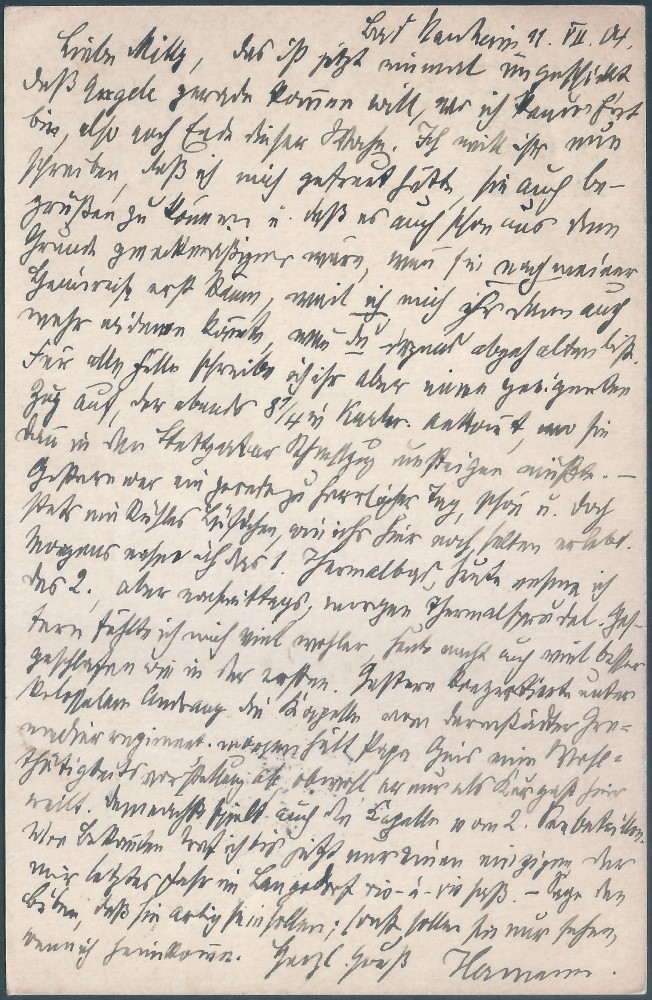 Bad Nauheim 11. VII. 04.
Liebe Milly, das ist jetzt einmal ungeschickt
daß Angele gerade kommen will, wo ich kaum fort
bin, also noch Ende dieser Woche. Ich will ihr nun
schreiben, daß ich mich gefreut hätte, sie auch be-
grüßen zu können u. daß es auch schon aus dem
Grunde zweckmäßiger wäre, wenn sie nach meiner
Heimreise erst käme, weil ich mich ihr dann auch
mehr widmen könnte, wenn du abgehalten bist.
Für alle Fälle schreibe ich ihr aber einen geeigneten
Zug auf, der abends 8 1/4 in ankommt, wo sie
dann in den Stuttgarter Schnellzug umsteigen müßte. –
Gestern war ein geradezu herrlicher Tag, schön u. doch
stets ein kühles Lüftchen, wie ich's hier noch selten erlebt.
Morgens nahm ich das 1. Thermalbad, heute nehme ich
das 2., aber nachmittags, morgen Thermalsprudel. Ges-
tern fühlte ich mich viel wohler, heute nacht auch viel besser
geschlafen wie in der ersten. Gestern konzertierte unter
kolossalem Andrang die Kapelle vom Darmstädter Gre-
nadierregiment. Morgen hält Papa Geis eine Wohl-
thätigkeitsvorstellung ab, obwohl er nur als Kurgast hier
weilt. Demnächst spielt auch die Kapelle vom 2. Seebataillon.
Von Bekannten traf ich bis jetzt nur einen einzigen der
mir letztes Jahr in vis-à-vis saß. – Sage den
Buben, daß sie artig sein sollen; sonst sollen sie nur sehen,
wenn ich heimkomme. Herzl. Gruß Hermann.